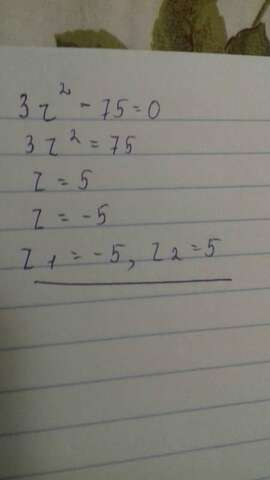 3z² - 75 = 0
3z² = 75
z = 5
z = -5
z₁ = -5, z₂ = 5